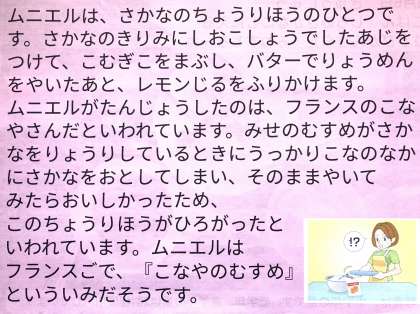 ムニエルは、さかなのちょうりほうのひとつで
す。さかなのきりみにしおこしょうでしたあじを
つけて、こむぎこをまぶし、バターでりょうめん
をやいたあと、レモンじるをふりかけます。
ムニエルがたんじょうしたのは、フランスのこな
やさんだといわれています。みせのむすめがさか
なをりょうりしているときにうっかりこなのなか
にさかなをおとしてしまい、そのままやいて
みたらおいしかったため、
このちょうりほうがひろがったと
いわれています。ムニエルは
フランスごで、『こなやのむすめ』
といういみだそうです。
!?